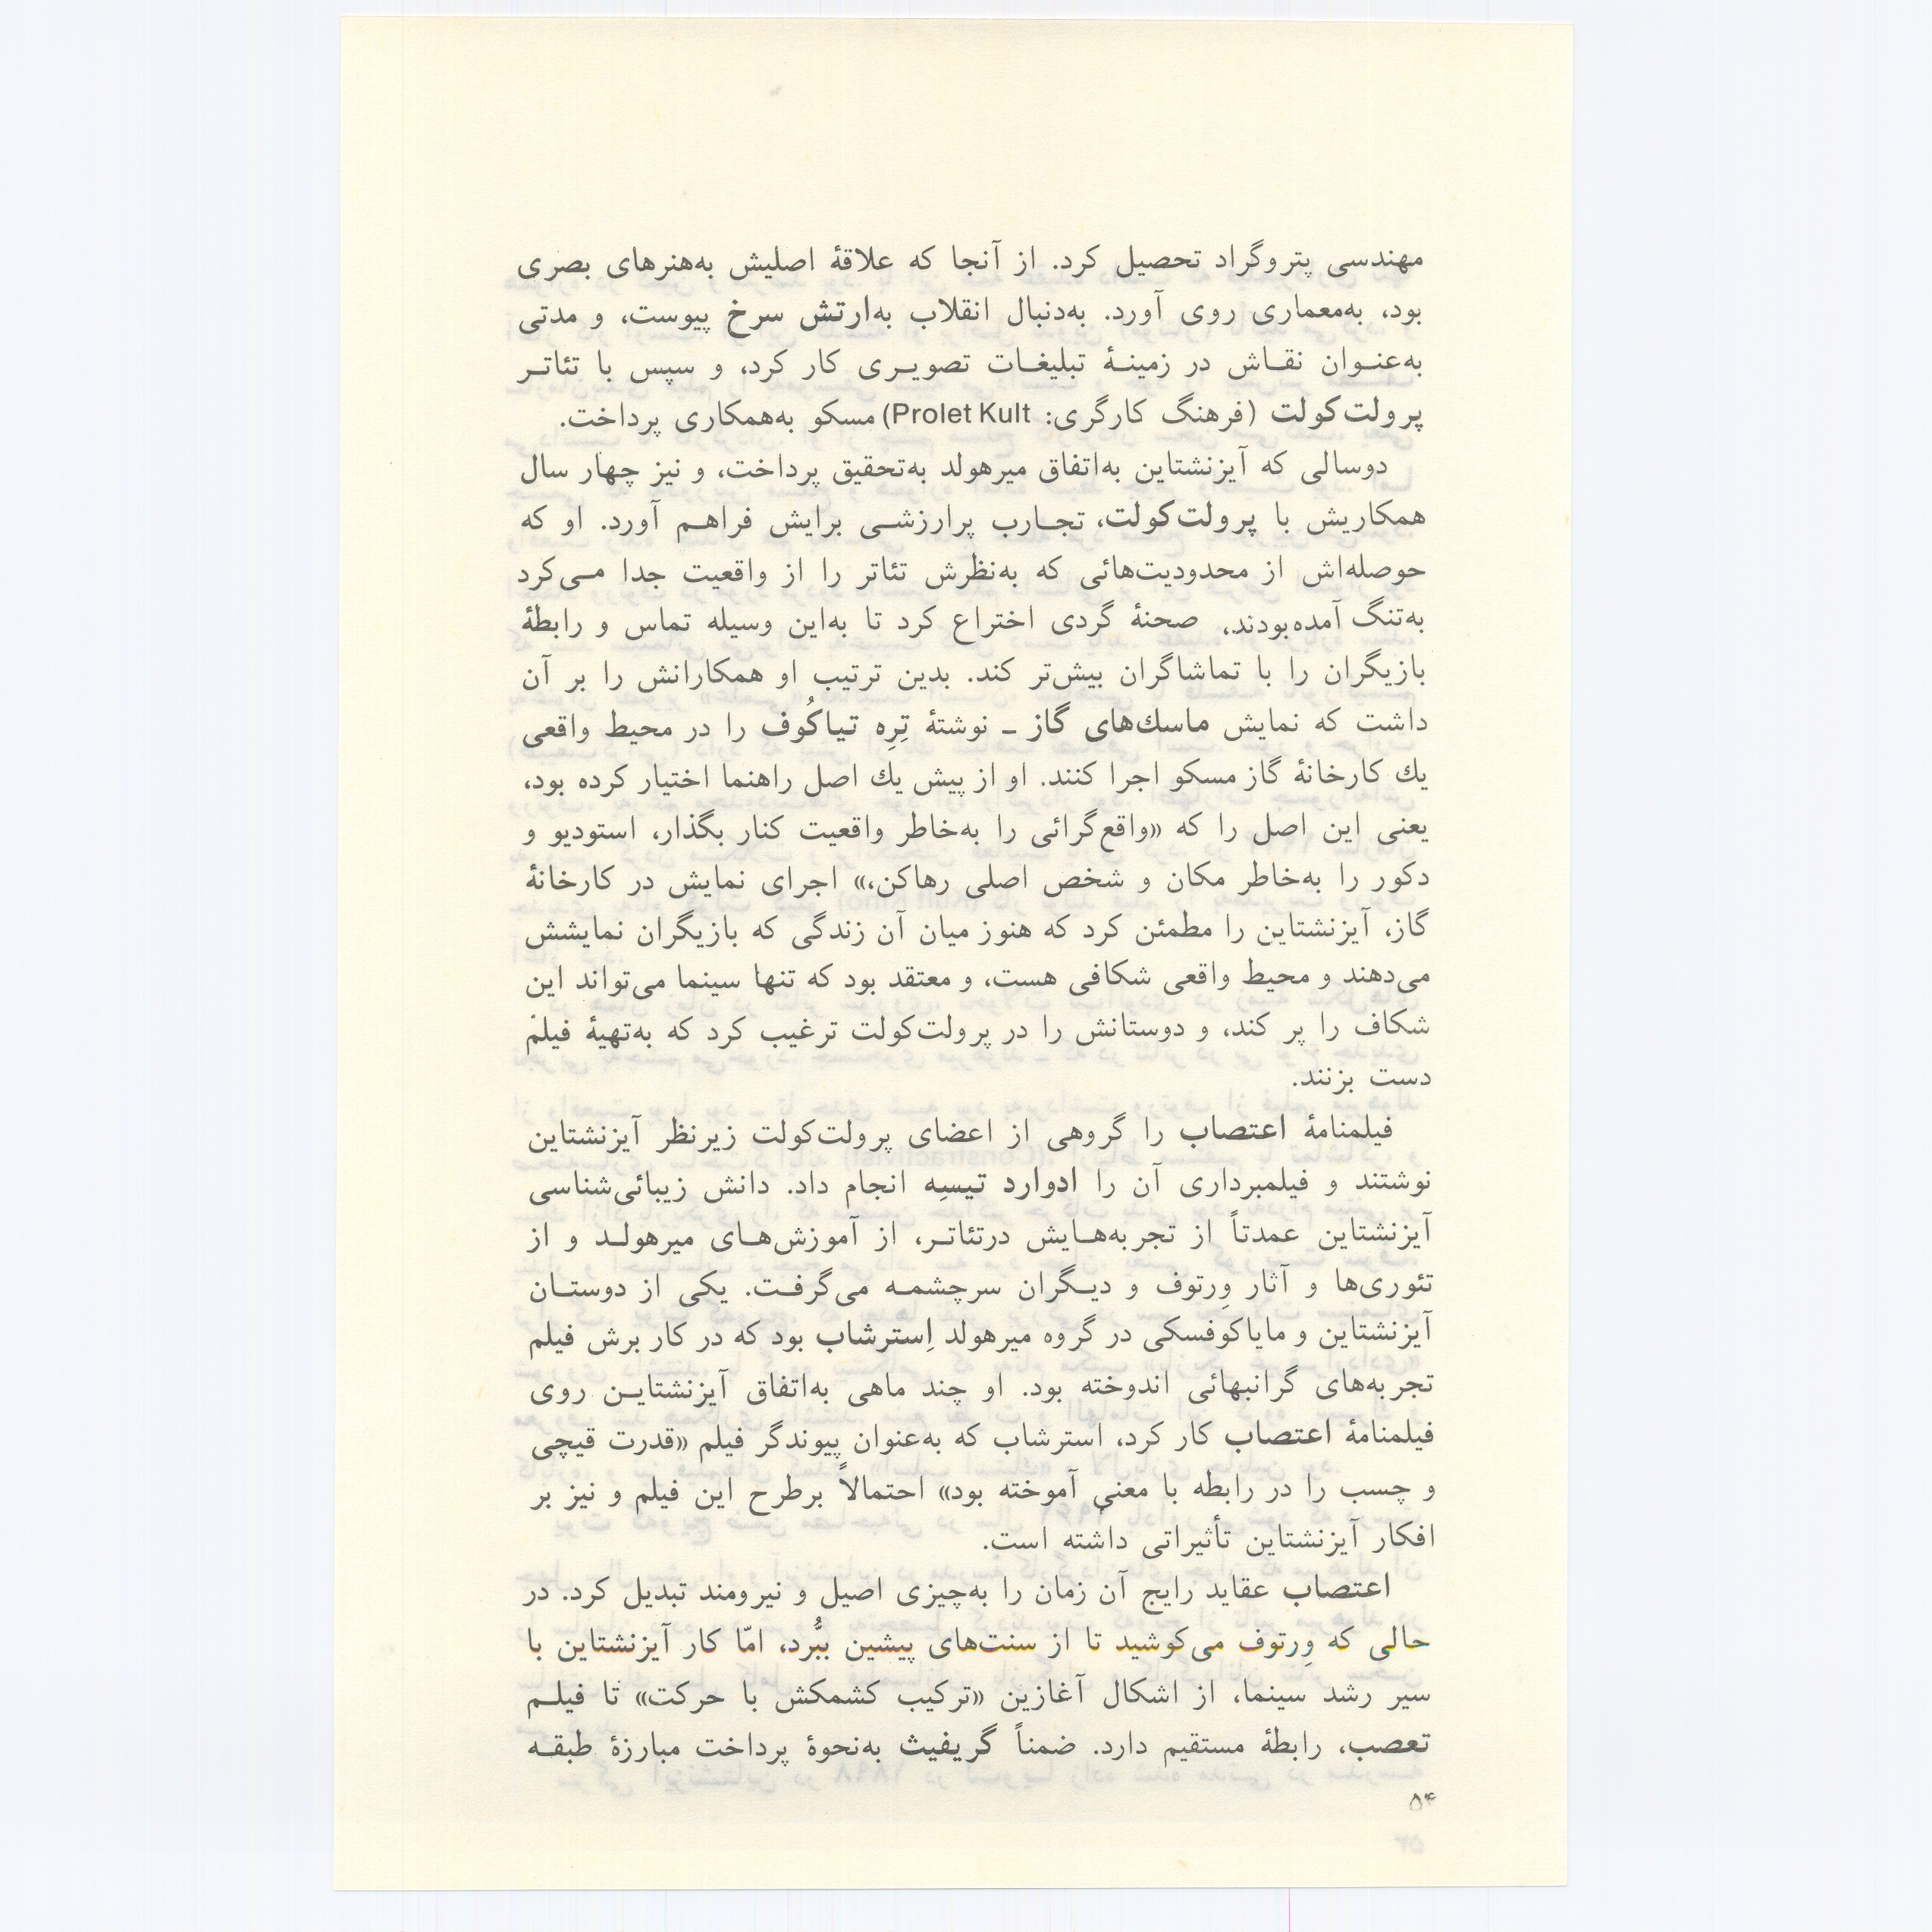 مهندسی پتروگراد تحصیل کرد. از آنجا که علاقهٔ اصلیش به‌هنرهای بصری
بود، به‌معماری روی آورد. به‌دنبال انقلاب به‌ارتش سرخ پیوست، و مدتی
به‌عنـوان نقـاش در زمینـهٔ تبلیغـات تصویـری کار کرد، و سپس با تئاتـر
پرولت‌کولت (فرهنگ کارگری: Prolet Kult) مسکو به‌همکاری پرداخت.
دوسالی که آیزنشتاین به‌اتفاق میرهولد به‌تحقیق پرداخت، و نیز چهار سال
همکاریش با پرولت‌کولت، تجـارب پرارزشـی برایش فراهـم آورد. او که
حوصله‌اش از محدودیت‌هائی که به‌نظرش تئاتر را از واقعیت جدا مـی‌کرد
به‌تنگ آمده‌بودند، صحنهٔ گردی اختراع کرد تا به‌این وسیله تماس و رابطهٔ
بازیگران را با تماشاگران بیش‌تر کند. بدین ترتیب او همکارانش را بر آن
داشت که نمایش ماسك‌های گاز ـ نوشتهٔ تِرِه تیاکُوف را در محیط واقعی
یك کارخانهٔ گاز مسکو اجرا کنند. او از پیش یك اصل راهنما اختیار کرده بود،
یعنی این اصل را که «واقع‌گرائی را به‌خاطر واقعیت کنار بگذار، استودیو و
دکور را به‌خاطر مکان و شخص اصلی رهاکن،» اجرای نمایش در کارخانهٔ
گاز، آیزنشتاین را مطمئن کرد که هنوز میان آن زندگی که بازیگران نمایشش
می‌دهند و محیط واقعی شکافی هست، و معتقد بود که تنها سینما می‌تواند این
شکاف را پر کند، و دوستانش را در پرولت‌کولت ترغیب کرد که به‌تهیهٔ فیلمْ
دست بزنند.
فیلمنامهٔ اعتصاب را گروهی از اعضای پرولت‌کولت زیرنظر آیزنشتاین
نوشتند و فیلمبرداری آن را ادوارد تیسِه انجام داد. دانش زیبائی‌شناسی
آیزنشتاین عمدتاً از تجربه‌هـایش درتئاتـر، از آموزش‌هـای میرهولـد و از
تئوری‌ها و آثار وِرتوف و دیـگران سرچشمـه می‌گرفـت. یکی از دوستـان
آیزنشتاین و مایاکوفسکی در گروه میرهولد اِسترشاب بود که در کار برش فیلم
تجربه‌های گرانبهائی اندوخته بود. او چند ماهی به‌اتفاق آیزنشتایـن روی
فیلمنامهٔ اعتصاب کار کرد، استرشاب که به‌عنوان پیوندگر فیلم «قدرت قیچی
و چسب را در رابطه با معنیِ آموخته بود» احتمالاً برطرح این فیلم و نیز بر
افکار آیزنشتاین تأثیراتی داشته است.
اعتصاب عقاید رایج آن زمان را به‌چیزی اصیل و نیرومند تبدیل کرد. در
حالی که وِرتوف می‌کوشید تا از سنت‌های پیشین ببُّرد، امّا کار آیزنشتاین با
سیر رشد سینما، از اشکال آغازین «ترکیب کشمکش با حرکت» تا فیلـم
تعصب، رابطهٔ مستقیم دارد. ضمناً گریفیث به‌نحوهٔ پرداخت مبارزهٔ طبقـه
۵۴